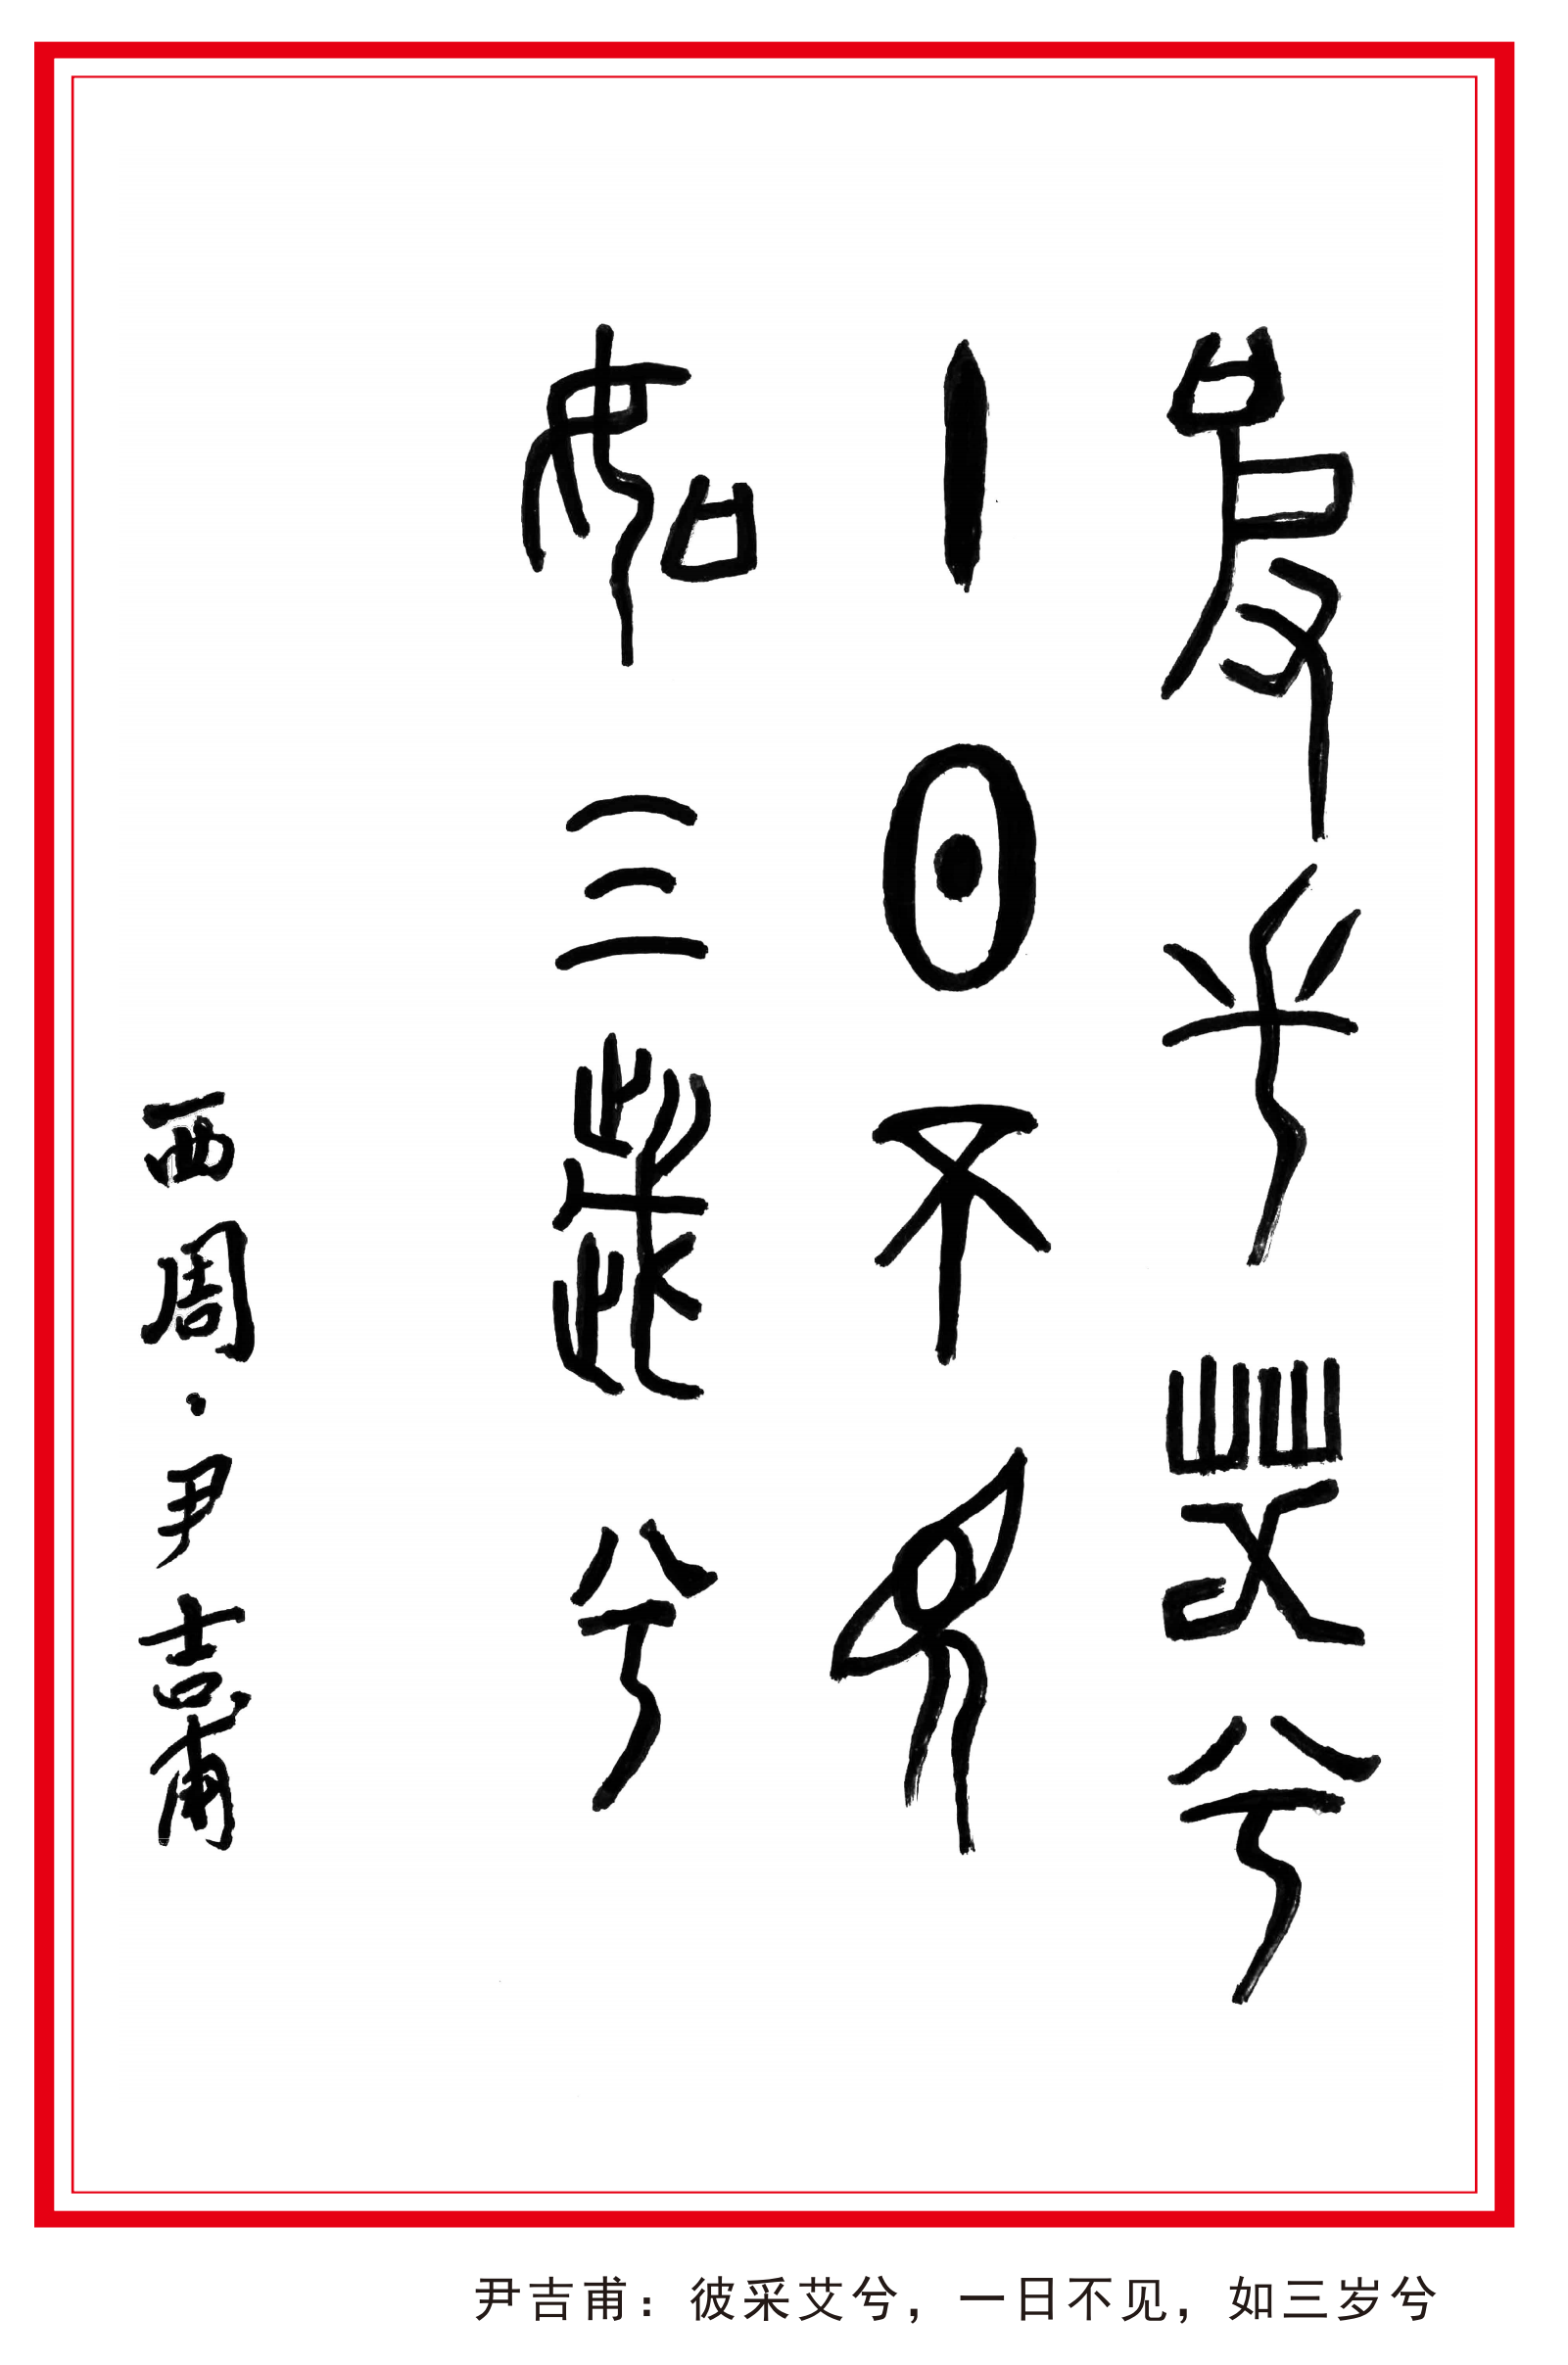 彼采艾兮
一日不见
如三岁兮
西周·尹吉甫
尹吉甫：彼采艾兮，一日不见，如三岁兮